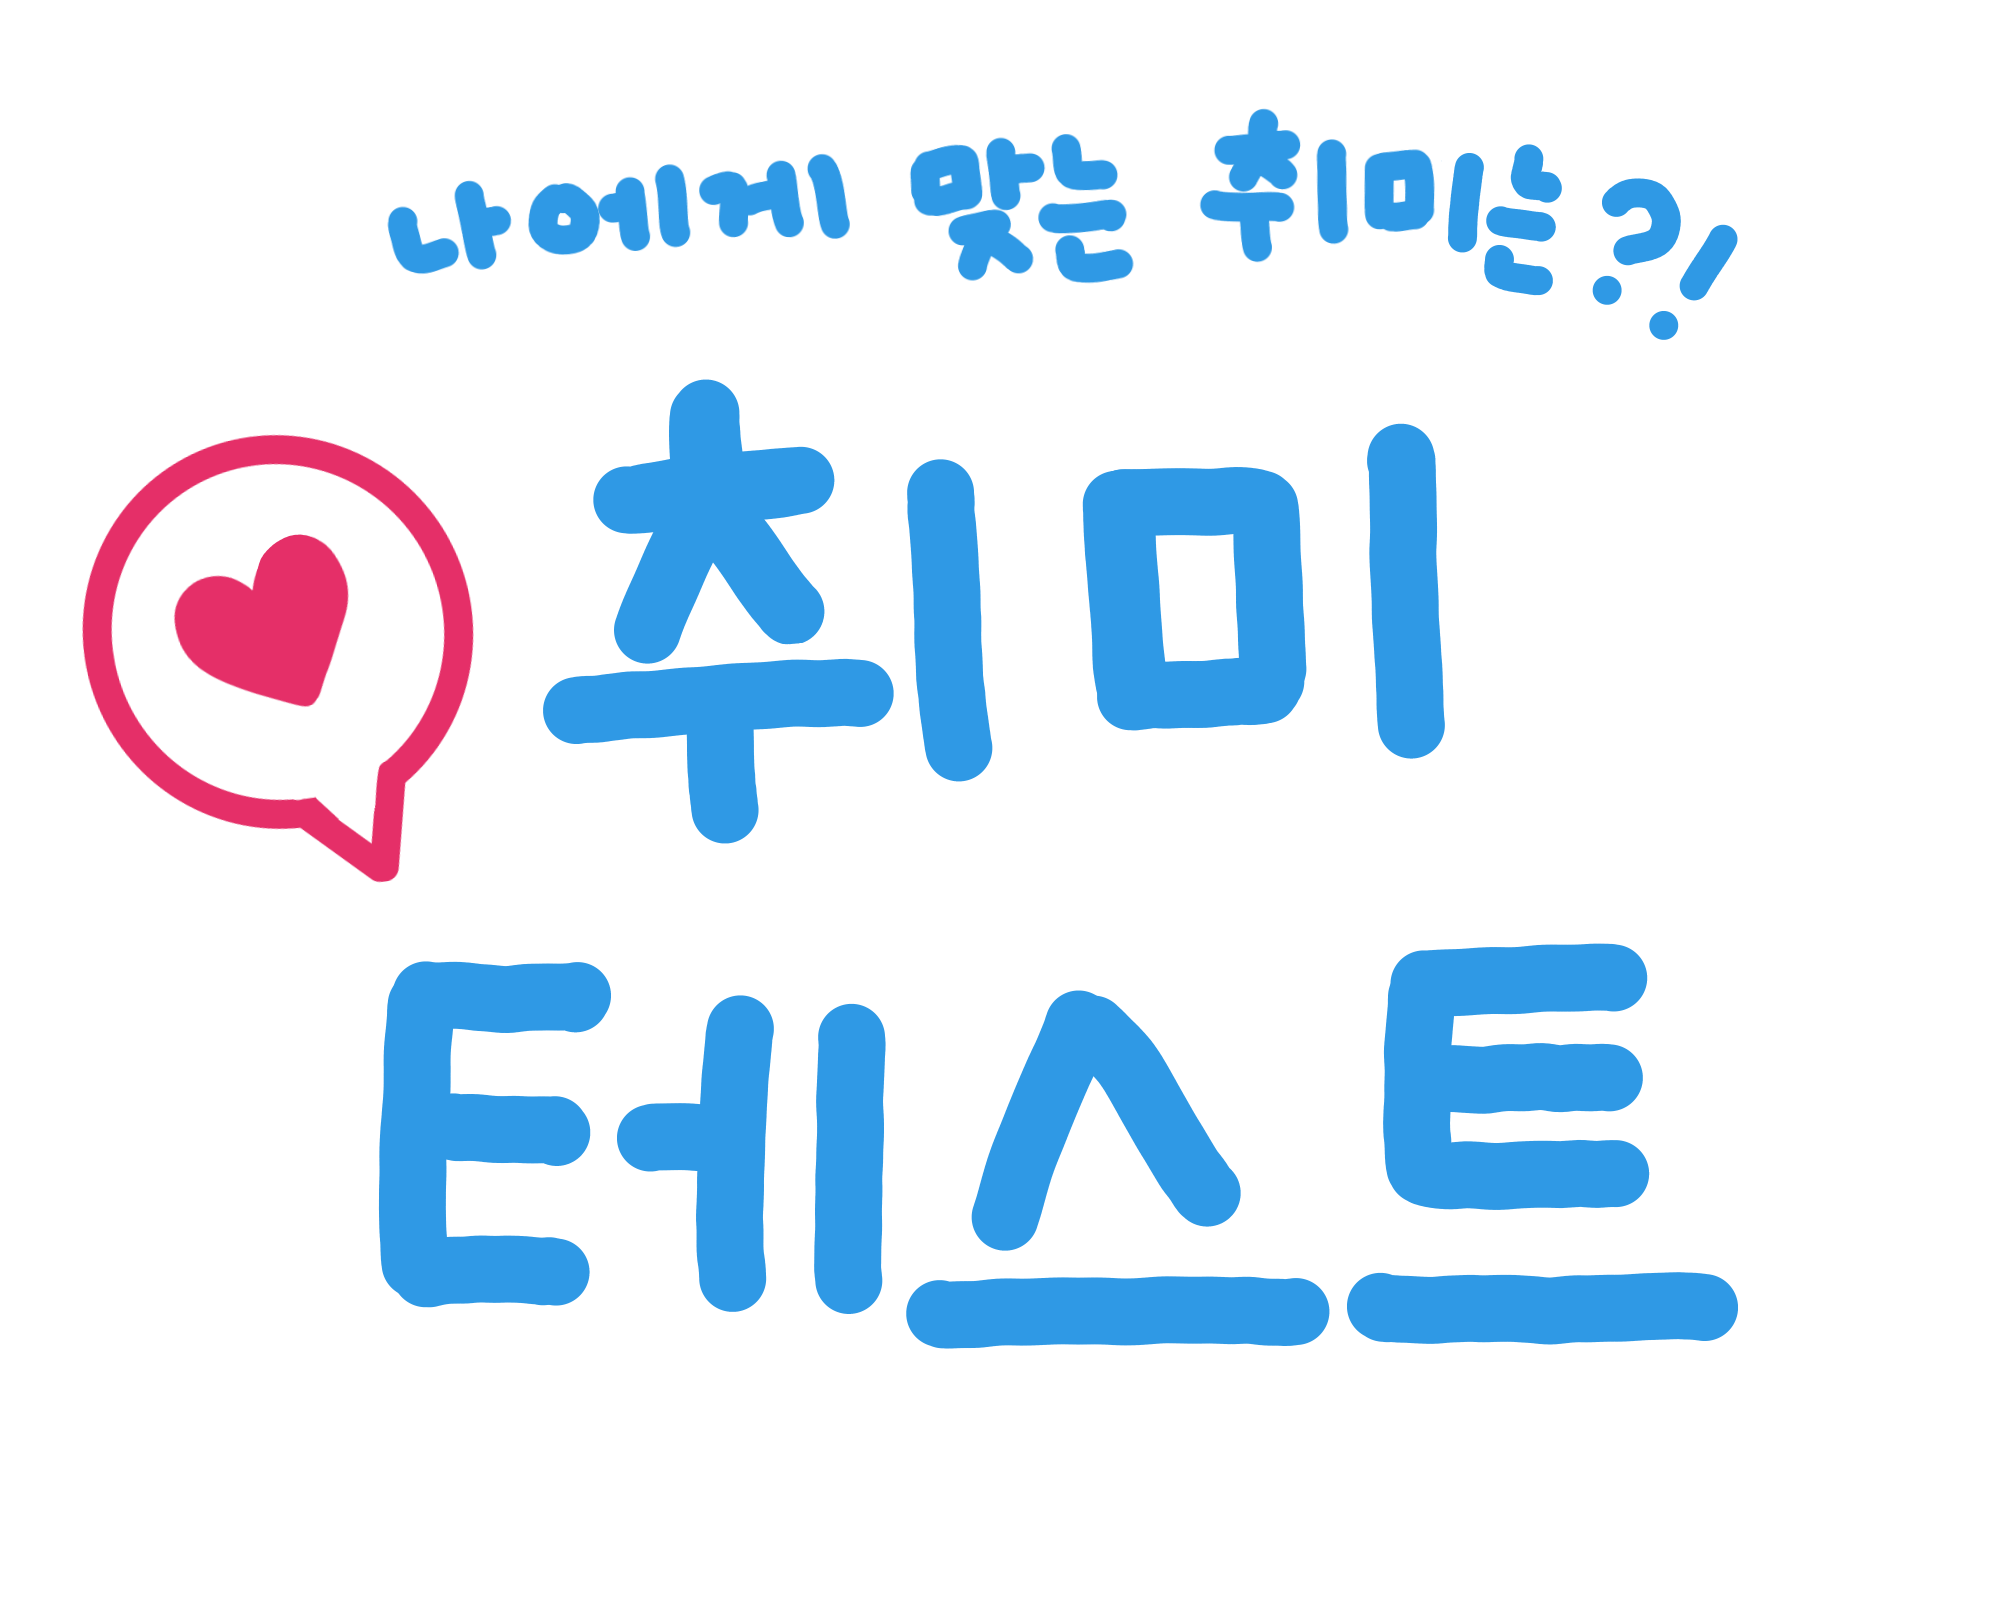 나에게 맞는 취미는?!
취미
테스트